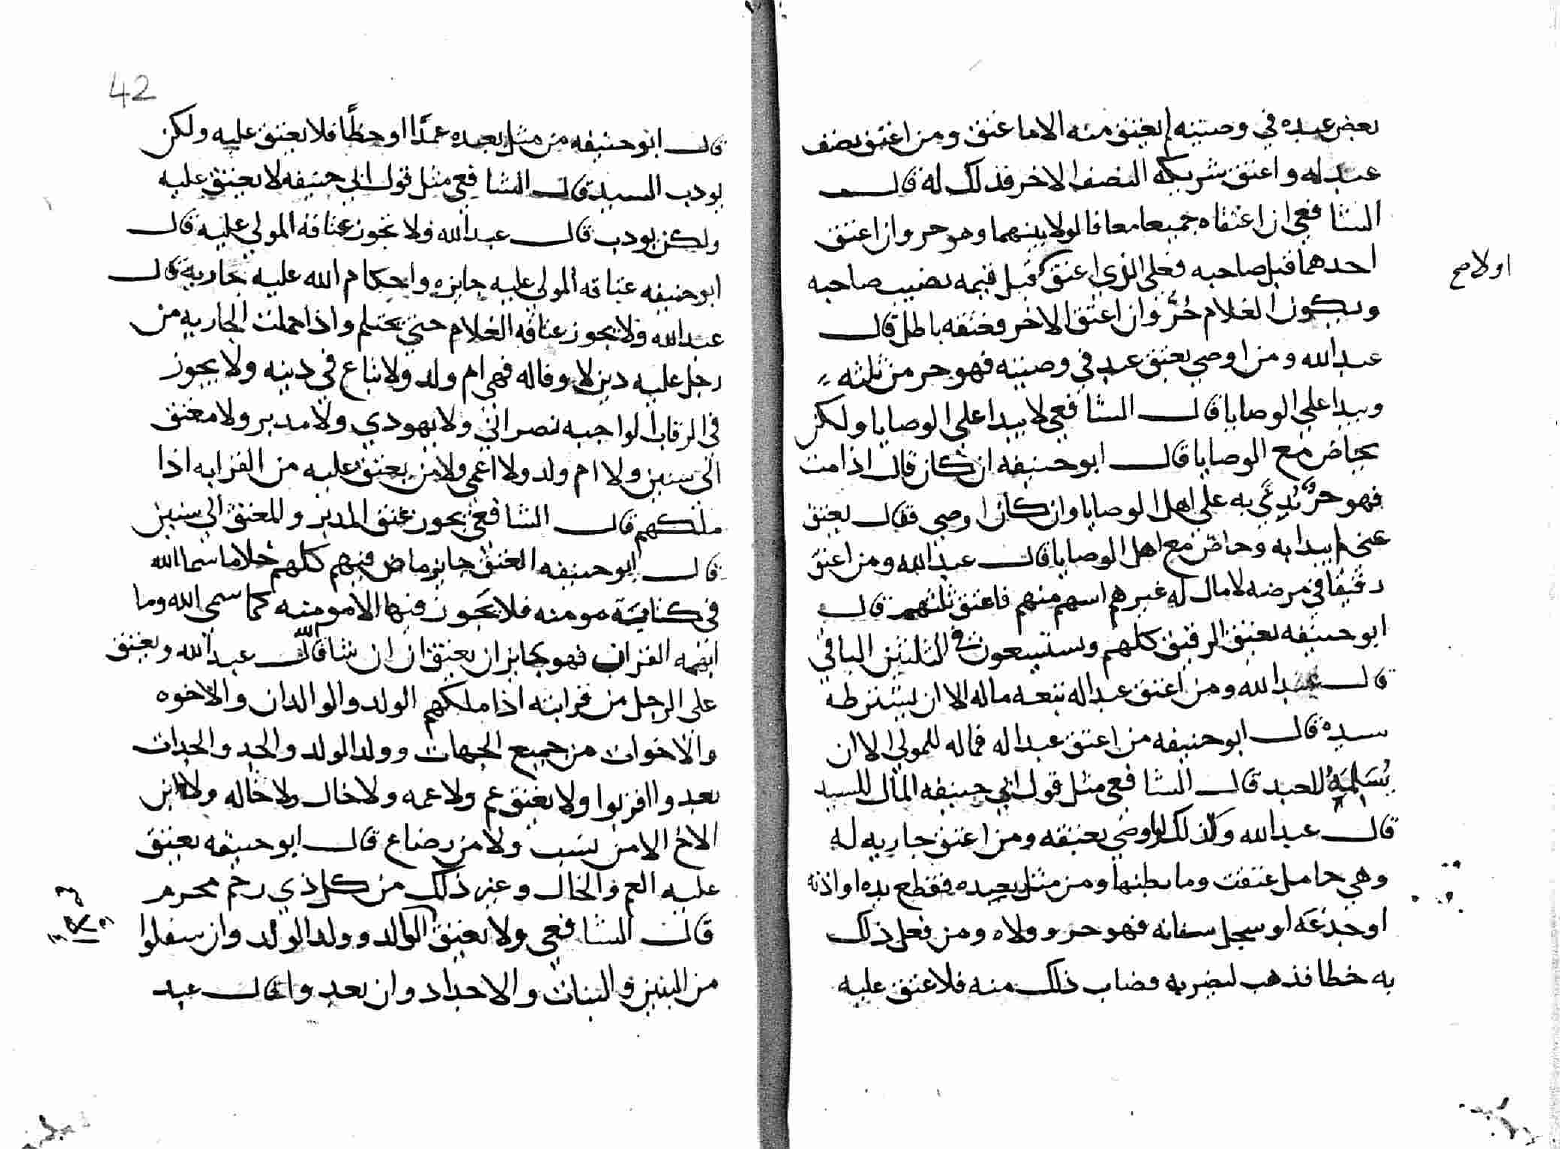 بعض عبده في وصيته لم يعتق منه الا ما عتق ومن اعتق نصف
عبد له واعتق شريكه النصف الاخر فذلك له قال
الشافعي ان اعتقاه جميعا معا فالولا بينهما وهو حر وان اعتق
احدهما قبل صاحبه فعلى الذي اعتق قبل قيمه نصيب صاحبه
اولا صح
ويكون الغلام حُرٌّ وان اعتق الاخر فعتقه باطل قال
عبد الله ومن اوصى بعتق عبد في وصيته فهو حر من ثلثه
ويبدا على الوصايا قال الشافعي لا يبدا على الوصايا ولكن
يحاص مع الوصايا قال ابو حنيفه ان كان قال اذا مت
فهو حرٌّ بُدِيَ به على اهل الوصايا وان كان اوصى فقال يعتق
عني لم يبدا به وحاص مع اهل الوصايا قال عبد الله ومن اعتق
رقيقا في مرضه لا مال له غيرهم اسهم منهم فاعتق ثلثهم قال
ابو حنيفه يعتق الرقيق كلهم ويستسعون في الثلثين الباقي
قال عبد الله ومن اعتق عبدا له تبعه ماله الا ان يشترطه
سيده قال ابو حنيفه من اعتق عبدا له فماله للمولى الا ان
يُسَلِّمَهُ للعبد قال الشافعي مثل قول ابي حنيفه المال للسيد
قال عبد الله وكذلك لو اوصى بعتقه ومن اعتق جاريه له
وهي حامل عتقت وما بطنها ومن مثل بعبده فقطع يده او اذنه
او جدعه او سجل سفانه فهو حر وولاه ومن فعل ذلك
به خطا فذهب ليضربه فصاب ذلك منه فلا عتق عليه
42
قال ابو حنيفه من مثل بعبده عمدًا او خطًا فلا يعتق عليه ولكن
يودب السيد قال الشافعي مثل قول ابي حنيفه لا يعتق عليه
ولكن يودب قال عبد الله ولا تجوز عتاقه المولى عليه قال
ابو حنيفه عتاقه المولى عليه جايزه واحكام الله عليه جاريه قال
عبد الله ولا يجوز عتاقه الغلام حتى يحتلم واذا حملت الجاريه من
رجل عليه دين لا وفا له فهي ام ولد ولا تباع في دينه ولا يجوز
في الرقاب الواجبه نصراني ولا يهودي ولا مدبر ولا معتق
الى سنين ولا ام ولد ولا اعمى ولا من يعتق عليه من القرابه اذا
ملكهم قال الشافعي يجوز عتق المدبر وللمعتق الى سنين
قال ابو حنيفه العتق جايز ماض فيهم كلهم خلا ما سما الله
في كتابه مومنه فلا يجوز فيها الا مومنه كما سمى الله وما
ابهمه القران فهو جايز ان يعتق ان ان شا قال عبد الله ويعتق
على الرجل من قرابته اذا ملكهم الولد والوالدان والاخوه
والاخوات من جميع الجهات وولد الولد والجد والجدات
بعدوا اقربوا ولا يعتق عم ولا عمه ولا خال ولا خاله ولا ابن
الاخ الا من نسب ولا من رضاع قال ابو حنيفه يعتق
عليه العم والخال وغير ذلك من كل ذي رحم محرم
قال الشافعي ولا يعتق الا الوالد وولد الولد وان سفلوا
من البنين والبنات والاجداد وان بعدوا قال عبد